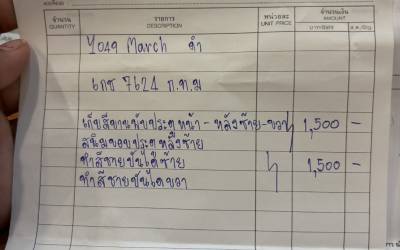 จำนวน รายการ หน่วยละ จำนวนเงิน
QUANTITY DESCRIPTION UNIT PRICE AMOUNT
March ดำ
7624 ก.ท.ม
เก็บสีขานับประตูหน้า - หลังซ้าย-ขวา 1,500 -
สนิมขอบประตูหลังซ้าย
ทำสีชายบันไดซ้าย 1,500 -
ทำสีชายบันไดขวา